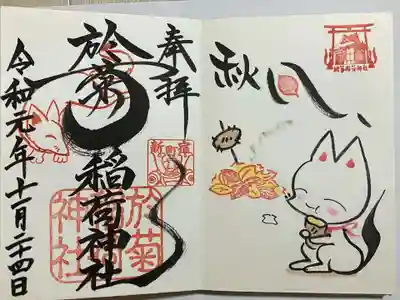 秋
奉拝
於菊稲荷神社
令和元年十一月二十四日
新町宿
於菊
神社